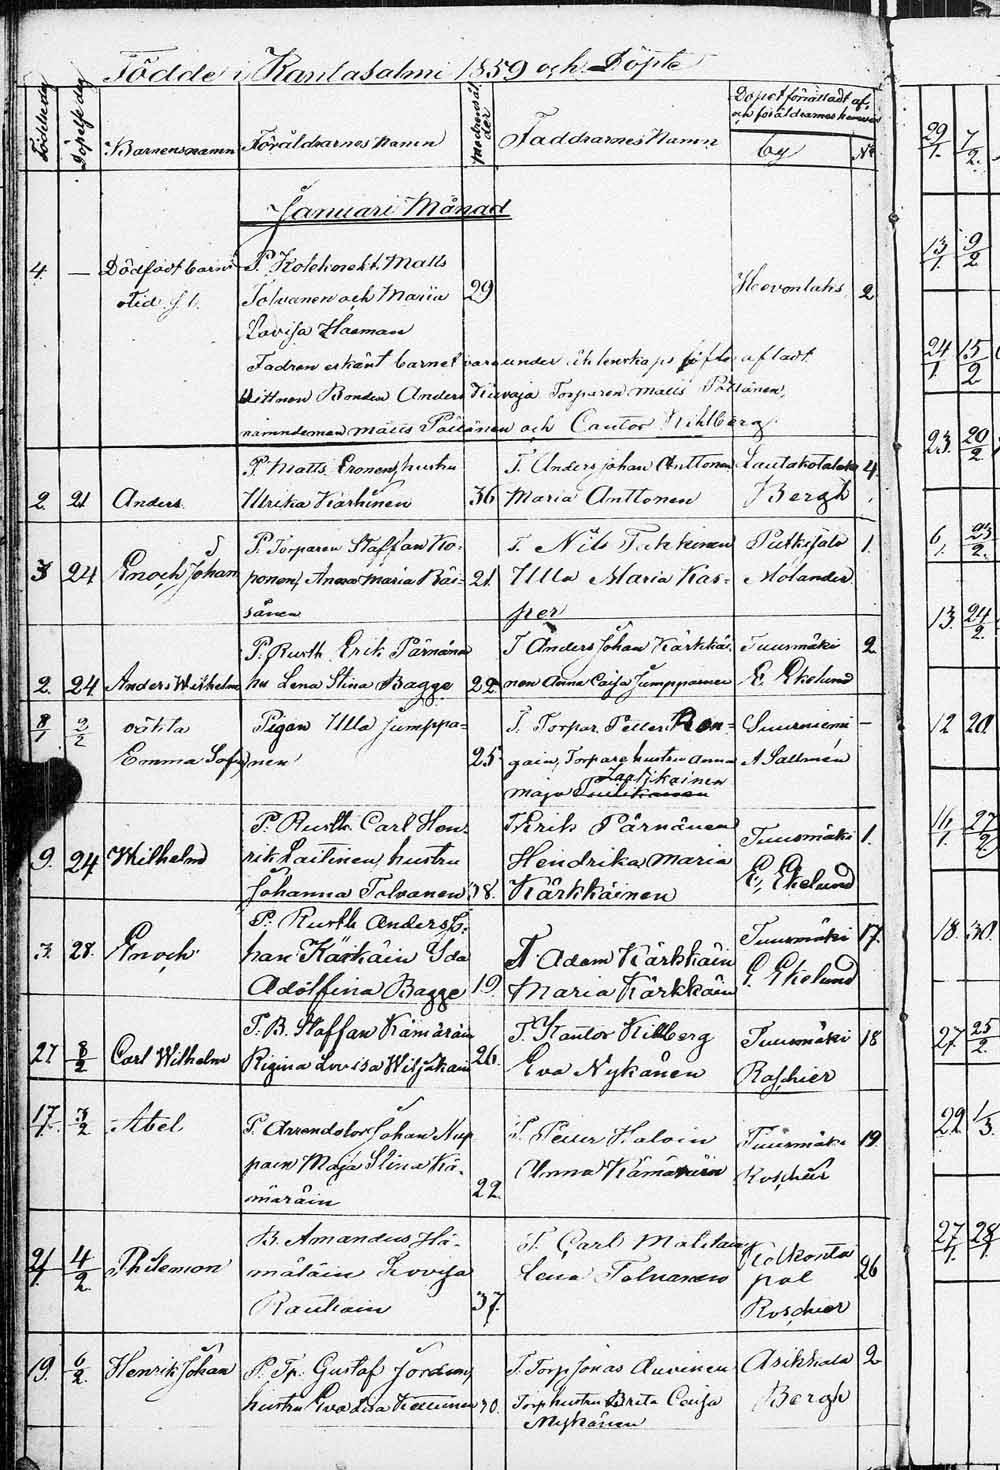 Födde i Kantasalmi 1859 och Döpte
Födelse dag
Döpelse dag
Barnens namn
Föräldrarnes Namn
Modrens ålder
Faddrarnes Namn
Dopet förrättadt af,
och föräldrarnes hemvist
by
No
Januari Månad
4. — Dödfödt barn P. Kolehoreht. Matts
Tolvanen och Maria 29 Hevonlahs 2
Lovisa Hasman
Fadren erkänt barnet vara under äktenskaps löfte afladt.
Vittnen Bonden Anders Torparen Matts Pöllänen,
nämndeman Matts Pöllänen och Cantor Kihlberg
P. Matts Eronen, hustru T. Anders Johan Anttonen Lautakotalaks 4
2. 21 Anders. Ulrika Karhinen 36 Maria Anttonen Bergh
P. Torparen Staffan Ko- T. Nils Tikkinen Putkisalo 1.
3 24 Enoch Johan ponen, Anna Maria Räi- 21. Ulla Maria Kas- Molander
sänen per
P. Rusth. Erik Pärnänen T Anders Johan Kärkkä- Tuusmäki 2
2. 24 Anders Wilhelm hu Lena Stina Bagge 22 nen Anna Caisa Jumppanen E. Ekelund
8/1 2/2 oäkta Pigan Ulla Jumppa- T. Torpar. Petter Ron- Suurniemi —
Emma Sofia nen 25 gain, Torpare hustru Anna A Sallmén
Maja Laatikainen
P. Rusth. Carl Hen- T Erik Pärnänen Tuusmäki 1.
9. 24 Wilhelm rik Laitinen, hustru Hendrika Maria E. Ekelund
Johanna Tolvanen 38. Kärkkäinen
P. Rusth Anders Jo- Tuusmäki 17.
3. 28. Enoch han Kärkäin Ida T Adam Kärkkäin E. Ekelund
Adolfina Bagge 19. Maria Kärkkäin
P. B. Staffan Kämäräin T. Kantor Kilberg Tuusmäki 18
27 8/2 Carl Wilhelm Regina Lovisa Wiljakain 26. Eva Nykänen Roschier
17/1 3/2 Abel P. Arrendator Johan Nup T. Petter Haloin Tuusmäki 19.
pain Maja Stina Kä- Anna Kämäräin Roschier
märäin 22.
B. Amandus Hä- T. Carl Makslain Kolkonta
21/1 4/2 Philemon mäläin Lovisa Lena Tolvanen pol 26
Rautiain 37. Roschier
19. 6/2 Henrik Johan P. Tp. Gustaf Jordan, T. Torp Jonas Auvinen Asikkala 2
hustru Eva Lisa Kettunen 30. Torp hustru Brita Caisa Bergh
Nykänen
29/1 7/2
13/1 9/2
24/1 15/2
23. 20/2
6/1 23/2
13. 24/2
12 20
16/1 27/2
18. 30.
27. 25/2
22. 1/3
27/1 28/1